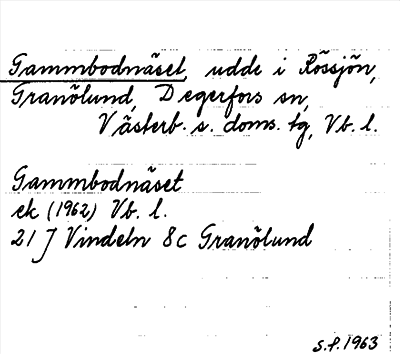 Gammbodnäset, udde i Rössjön,
Granölund, Degerfors sn,
Västerb. s. doms. tg, Vb. l.
Gammbodnäset
ek (1962) Vb. l.
21 J Vindeln 8c Granölund
S.f. 1963